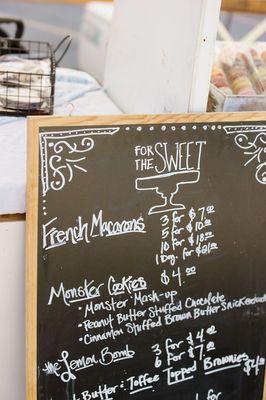 FOR THE SWEET
French Macarons 3 for $7.00
5 for $10.00
10 for $18.00
1 Dz. for $21.00
Monster Cookies $4.00
• Monster Mash-up
• Peanut Butter Stuffed Chocolate
• Cinnamon Stuffed Brown Butter Snickerdood
the Lemon Bomb 3 for $4.00
6 for $7.00
Butter: Toffee Topped Brownies $4
for